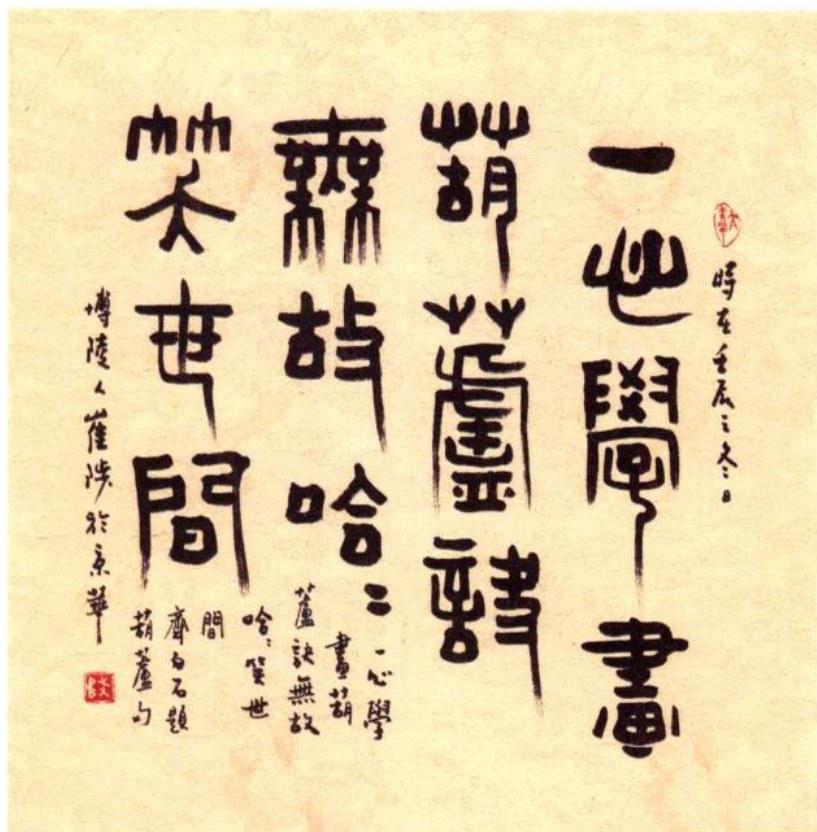 時在壬辰之冬日
一心學畫
葫蘆訣
無故哈〻
笑世間
一心學
畫葫
蘆訣無故
哈〻笑世
間
齊白石題
葫蘆句
博陵人崔陟於京華